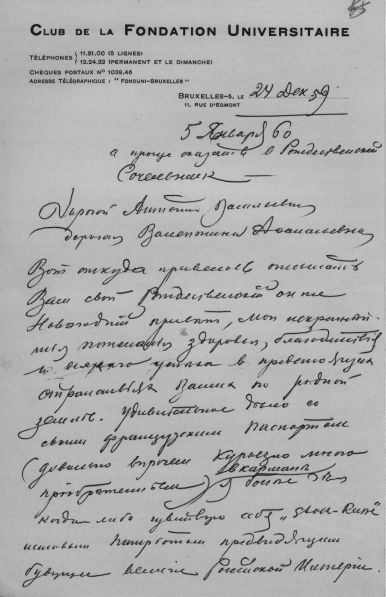 CLUB DE LA FONDATION UNIVERSITAIRE
TÉLÉPHONES { 11.81.00 (5 LIGNES)
12.24.22 (PERMANENT ET LE DIMANCHE)
CHÈQUES POSTAUX N° 1039.46
ADRESSE TÉLÉGRAPHIQUE : " FONDUNI-BRUXELLES "
BRUXELLES-5, LE 24 Дек 59
11, RUE D'EGMONT
5 Января 60
а проще сказать в Рождественский
Сочельник —
Дорогой Антоний Васильевич
дорогая Валентина Афанасьевна
Вот откуда привелось описать
Вам свой Рождественский он же
Новогодний привет, мои искренний
пожелания здоровья, благоденствия
и всякого успеха в
Вашим по родной
земле. Удивительно было со
своим французским паспортом
(довольно впрочем курьезно много
в кармане
) Я более чем
когда либо чувствую себя
будущее величие Российской Империи.